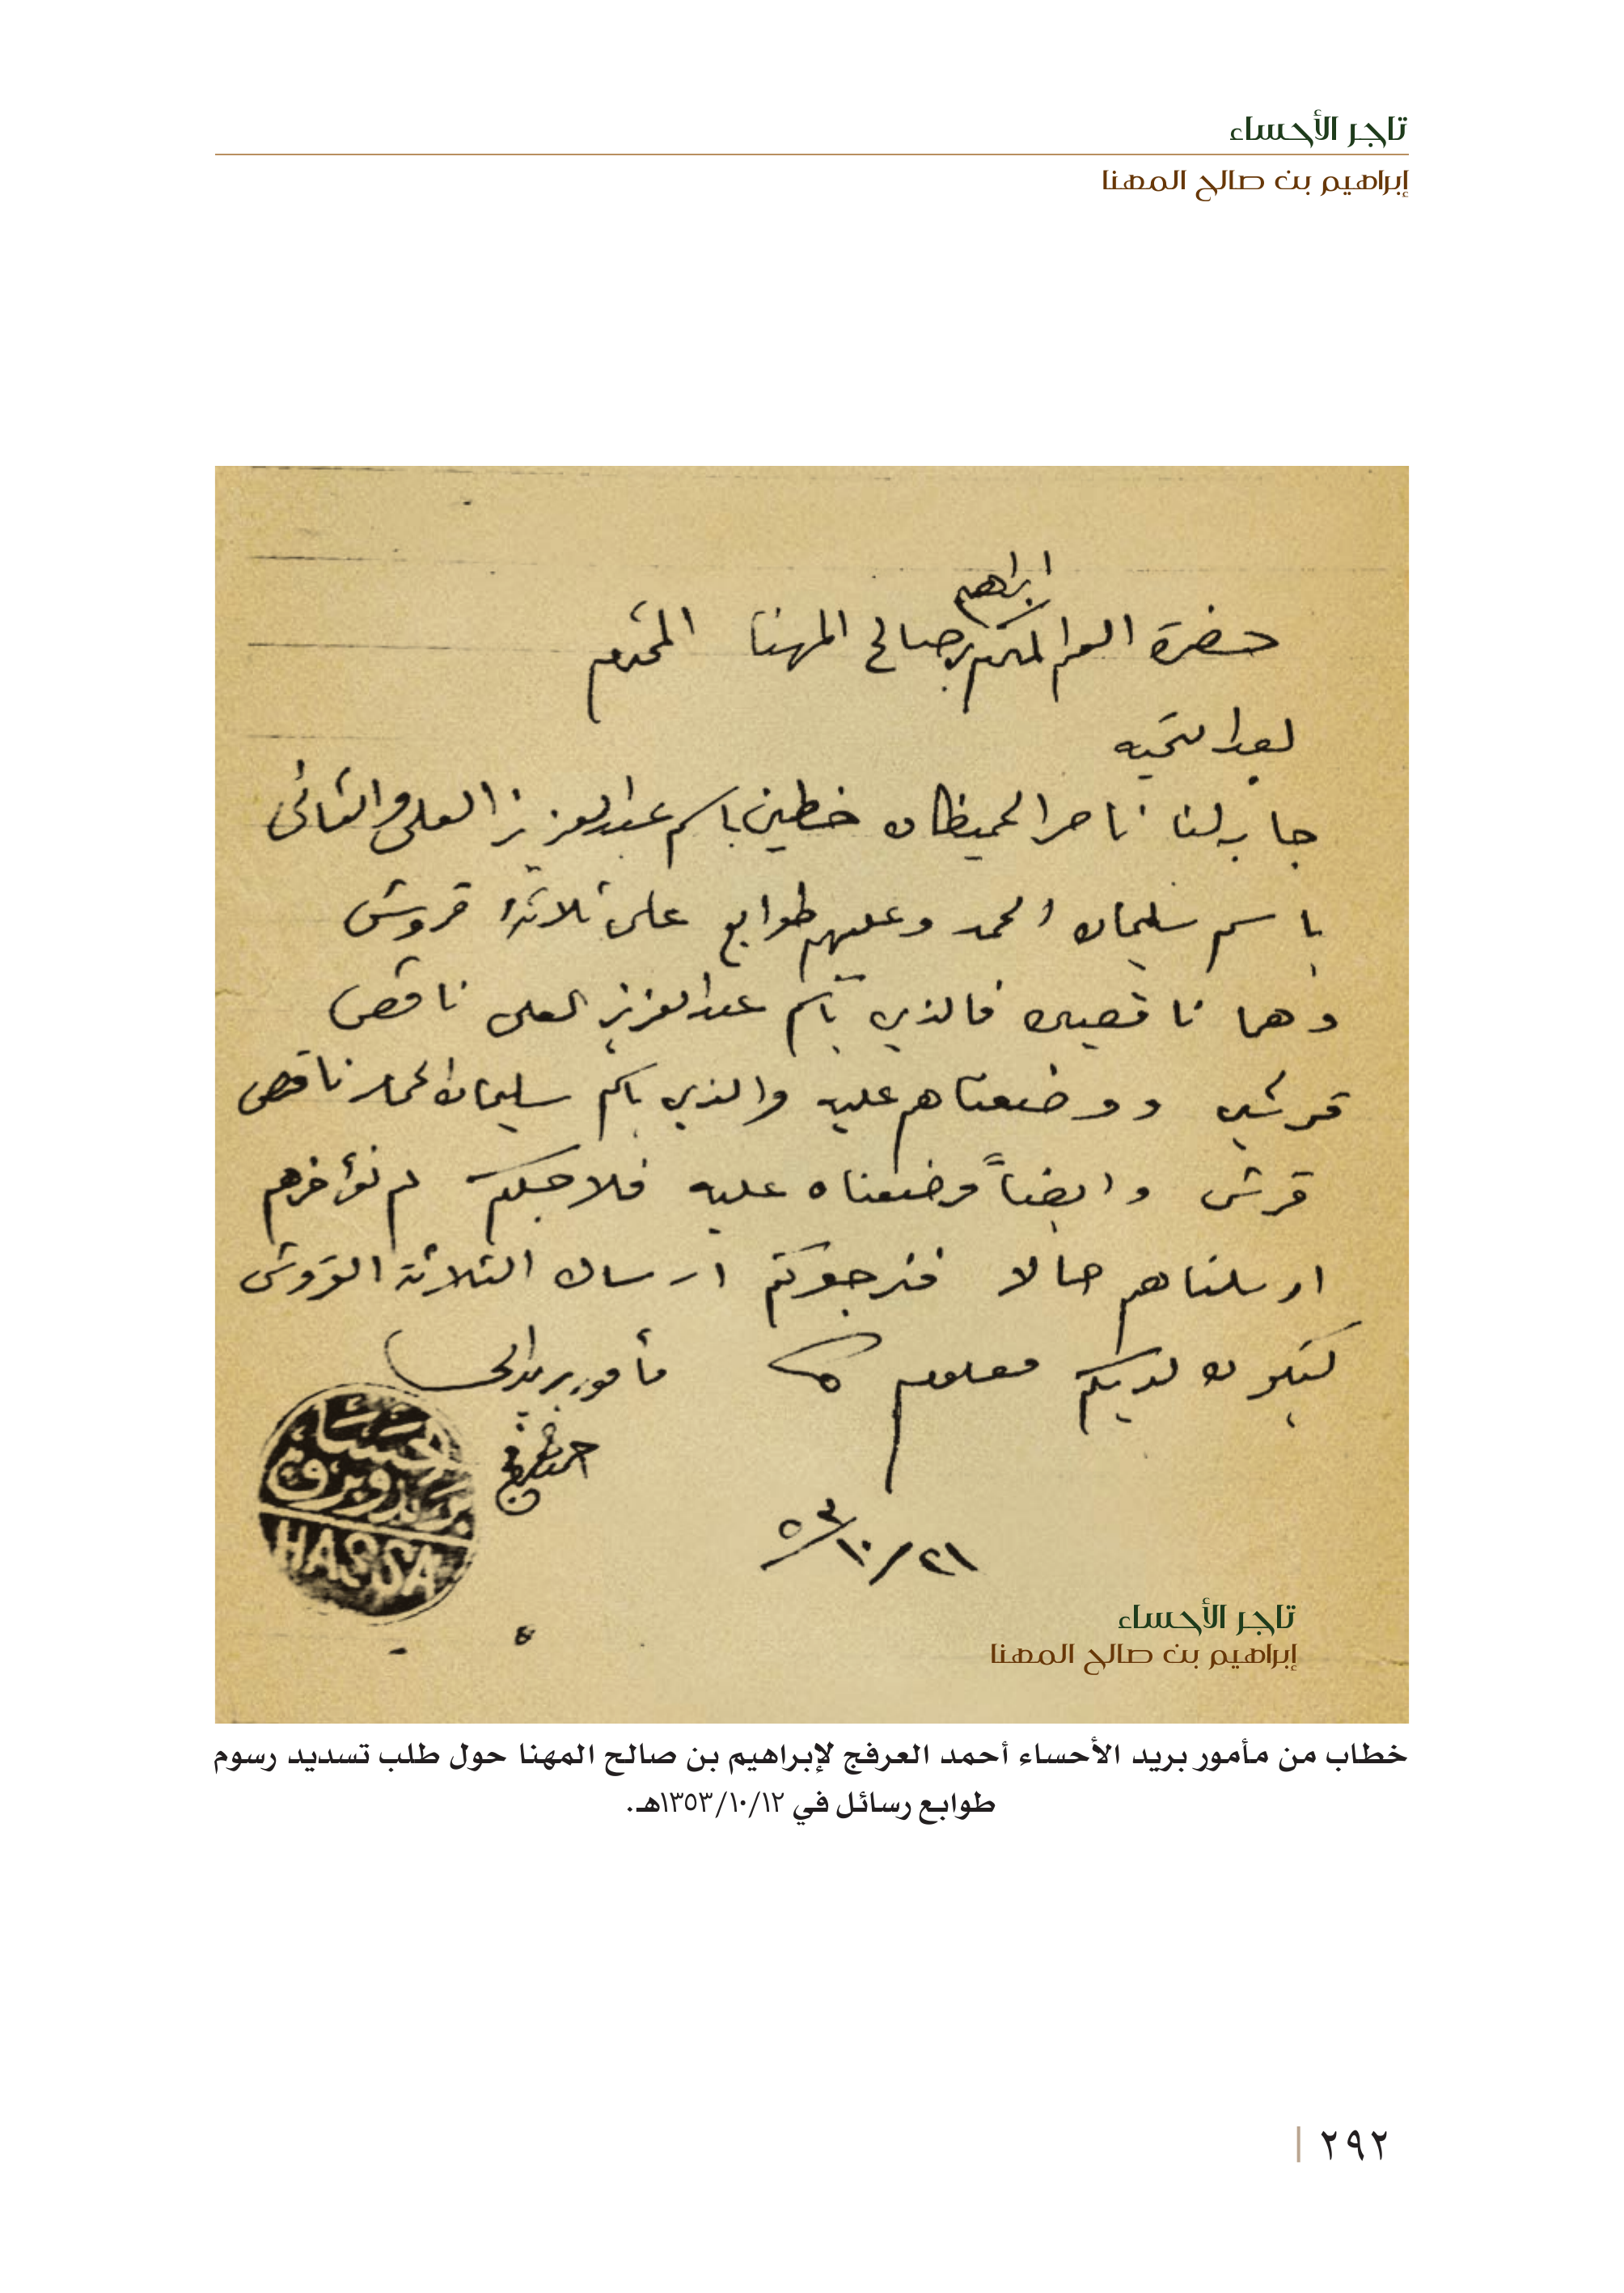 تاجر الأحساء
إبراهيم بن صالح المهنا
ابراهيم
حضرة المكرم بن صالح المهنا المحترم
بعد التحيه
جا به لنا ناصر الحميظان خطين باسم عبدالعزيز العلي والثاني
باسم سليمان الحمد وعليهم طوابع على ثلاثة قروش
وهما ناقصين فالذي باسم عبدالعزيز العلي ناقص
قرشين ووضعناهم عليه والذي باسم سليمان الحمد ناقص
قرش وايضاً وضعناه عليه فلاجلكم لم نؤخرهم
ارسلناهم حالا فنرجوكم ارسال الثلاثة القروش
ليكون لديكم معلوم مأمور بريد الحسا
احمد العرفج
٢١/١٠/٥٣
HASSA
تاجر الأحساء
إبراهيم بن صالح المهنا
خطاب من مأمور بريد الأحساء أحمد العرفج لإبراهيم بن صالح المهنا حول طلب تسديد رسوم
طوابع رسائل في ١٣٥٣/١٠/١٢هـ.
٢٩٢